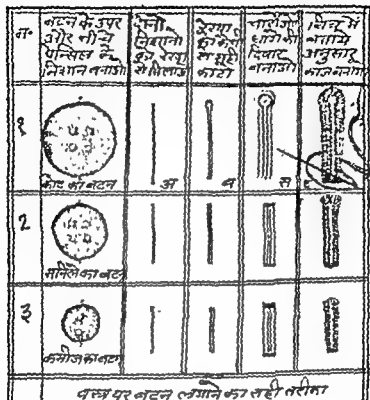 न०
बटन के उपर
और नीचे
पेन्सिल के
निशान बनाओ
दोनो
निशानो
को रेखा
से मिलाओ
रेखा
को
काटो
धागे की
दिवार
बनाओ
चित्र में
बताये
अनुसार
काज बनाओ
१
कोट का बटन
अ
ब
स
२
का बटन
३
कमीज का बटन
वस्त्र पर बटन लगाने का सही तरीका